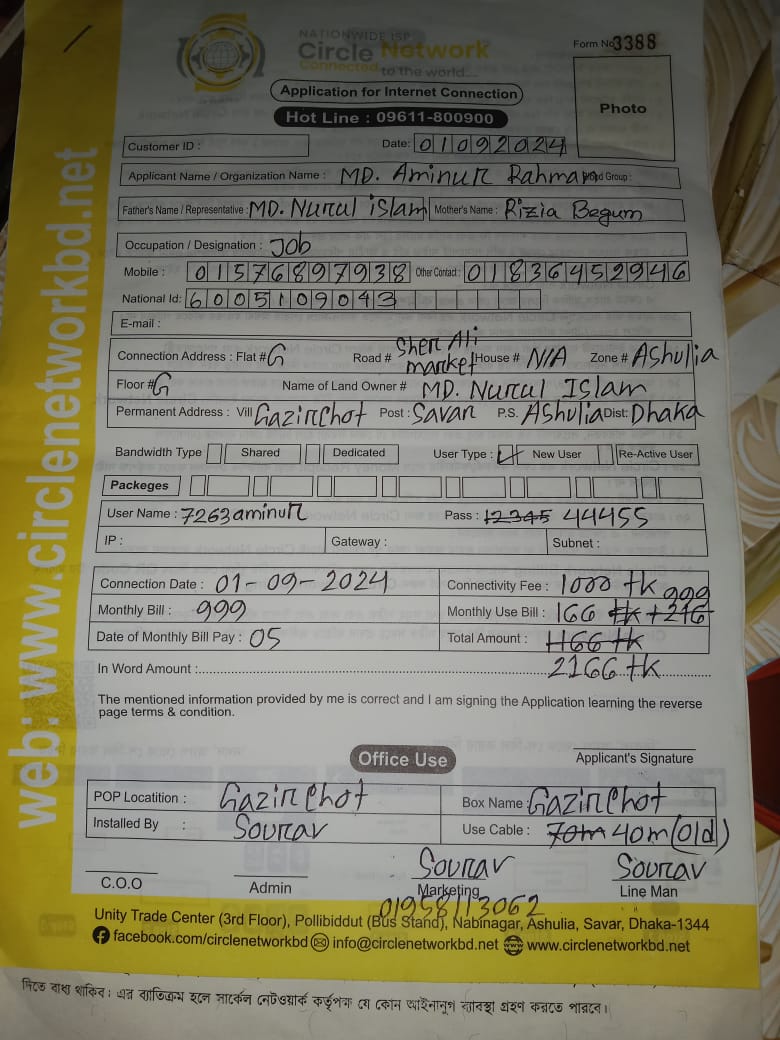 NATIONWIDE ISP
Circle Network
Connected to the world...
Form No 3388
Application for Internet Connection
Hot Line : 09611-800900
Photo
Customer ID :
Date: 01092024
Applicant Name / Organization Name : MD. Aminur Rahman Group :
Father's Name / Representative : MD. Nurul islam Mother's Name : Rizia Begum
Occupation / Designation : Job
Mobile : 01576897938 Other Contact : 01836452946
National Id: 6005109043
E-mail :
Connection Address : Flat # G Road # Sher Ali market House # N/A Zone # Ashulia
Floor # G Name of Land Owner # MD. Nurul Islam
Permanent Address : Vill Gazirchot Post : Savar P.S. Ashulia Dist: Dhaka
Bandwidth Type Shared Dedicated User Type : New User Re-Active User
Packeges
User Name : 7263aminur Pass : 12345 44455
IP : Gateway : Subnet :
Connection Date : 01-09-2024 Connectivity Fee : 1000 tk 999
Monthly Bill : 999 Monthly Use Bill : 166 tk +216
Date of Monthly Bill Pay : 05 Total Amount : 1166 tk
In Word Amount :.......... 2166 tk
The mentioned information provided by me is correct and I am signing the Application learning the reverse
page terms & condition.
Applicant's Signature
Office Use
POP Locatition : Gazirchot Box Name : Gazirchot
Installed By : Sourav Use Cable : 70m 40m (old)
Sourav Sourav
C.O.O Admin Marketing Line Man
01958113062
Unity Trade Center (3rd Floor), Pollibiddut (Bus Stand), Nabinagar, Ashulia, Savar, Dhaka-1344
facebook.com/circlenetworkbd info@circlenetworkbd.net www.circlenetworkbd.net
web: www.circlenetworkbd.net
দিতে বাধ্য থাকিব। এর ব্যতিক্রম হলে সার্কেল নেটওয়ার্ক কর্তৃপক্ষ যে কোন আইনানুগ ব্যবস্থা গ্রহণ করতে পারবে।